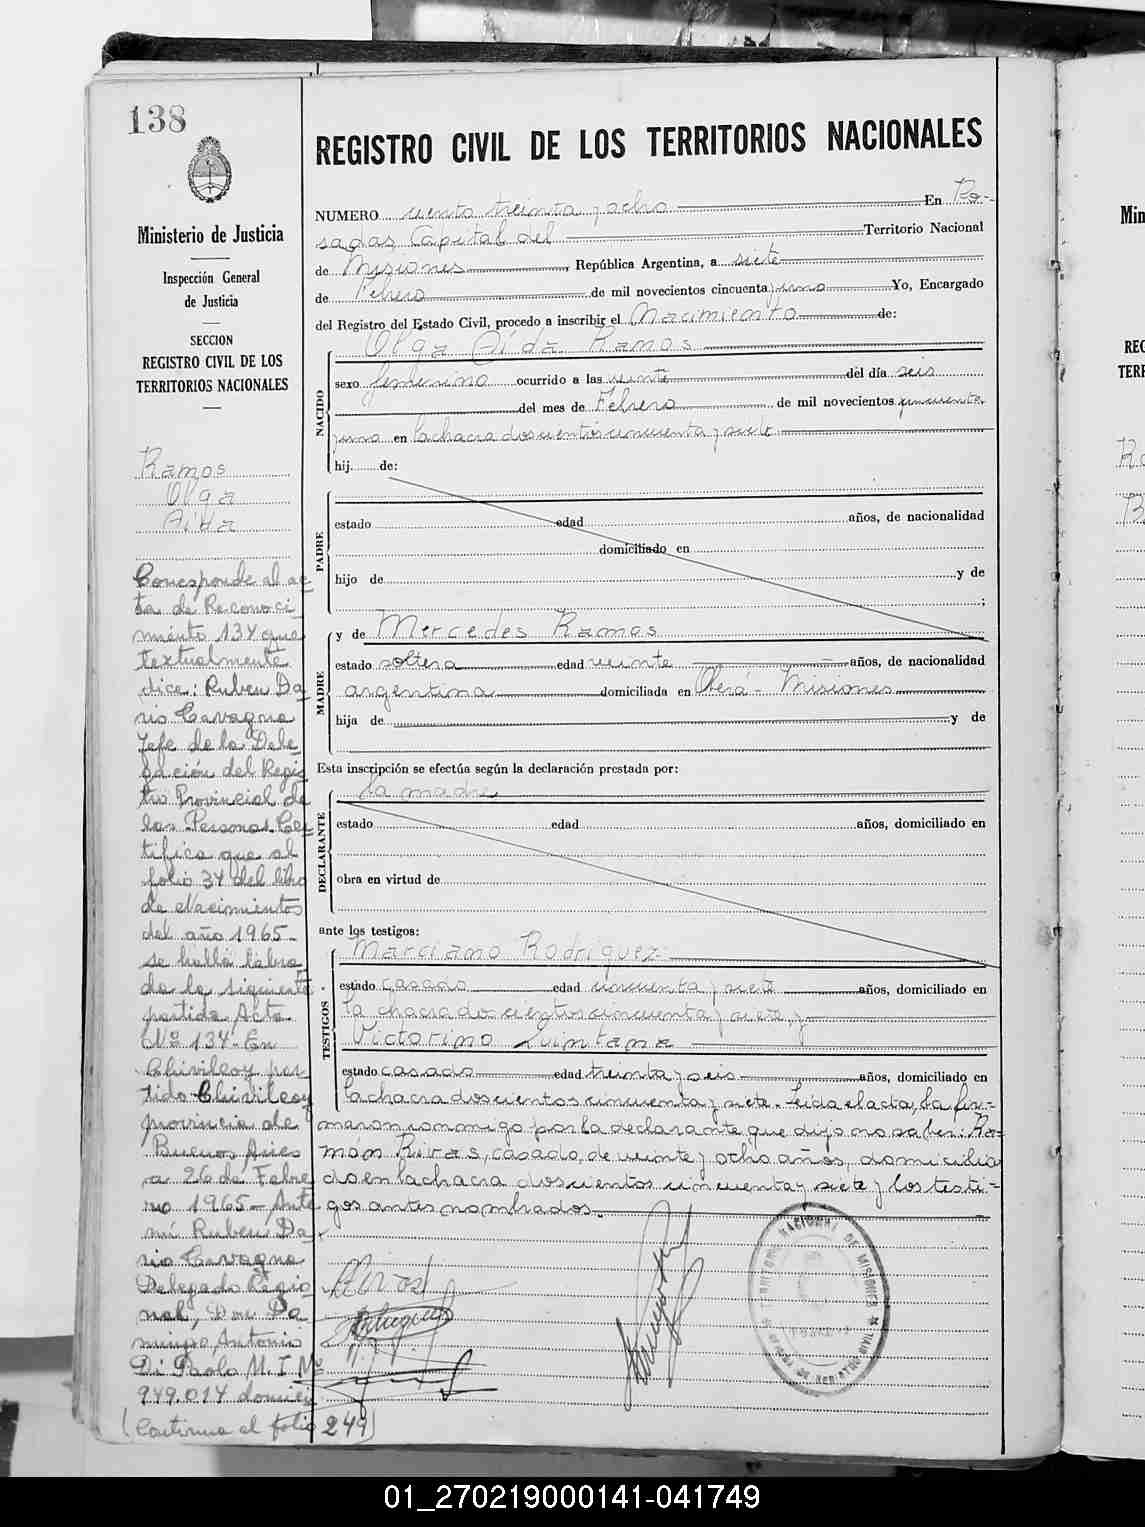 138
Ministerio de Justicia
Inspección General
de Justicia
SECCION
REGISTRO CIVIL DE LOS
TERRITORIOS NACIONALES
Ramos
Olga
Aída
Corresponde al ac-
ta de Reconoci
miento 134 que
textualmente
dice: Ruben Da
rio Cavagna
Jefe de la Dele
gación del Regis
tro Provincial de
las Personas Cer
tifica que al
folio 34 del libro
de Nacimientos
del año 1965-
se halla labra
da la siguiente
partida Acta
Nº 134- En
Chivilcoy par
tido Chivilcoy
provincia de
Buenos Aires
a 26 de Febre
ro 1965- Ante
mí Ruben Da-
rio Cavagna
Delegado Regio
nal, Don Do
mingo Antonio
Di Paola M. I. Nº
949.014 domici
(Continua al folio 249)
REGISTRO CIVIL DE LOS TERRITORIOS NACIONALES
NUMERO ciento treinta y ocho En Po-
sadas, Capital del Territorio Nacional
de Misiones, República Argentina, a siete
de Febrero de mil novecientos cincuenta y uno Yo, Encargado
del Registro del Estado Civil, procedo a inscribir el Nacimiento de:
NACIDO
Olga Aída Ramos
sexo femenino ocurrido a las veinte del día seis
del mes de Febrero de mil novecientos cincuenta
y uno en la chacra doscientos cincuenta y siete
hij de:
PADRE
estado edad años, de nacionalidad
domiciliado en
hijo de y de
;
MADRE
y de Mercedes Ramos
estado soltera edad veinte años, de nacionalidad
argentina domiciliada en Oberá - Misiones
hija de y de
Esta inscripción se efectúa según la declaración prestada por:
DECLARANTE
la madre
estado edad años, domiciliado en
obra en virtud de
ante los testigos:
TESTIGOS
Marciano Rodriguez
estado casado edad cincuenta y siete años, domiciliado en
la chacra doscientos cincuenta y siete, y
Victorino Quintana
estado casado edad treinta y seis años, domiciliado en
la chacra doscientos cincuenta y siete. Leida el acta, la fir-
maron conmigo por la declarante que dijo no saber: Ra-
món Rivas, casado, de veinte y ocho años, domicilia
do en la chacra doscientos cincuenta y siete y los testi-
gos antes nombrados.
TERRITORIO NACIONAL DE MISIONES
01_270219000141-041749